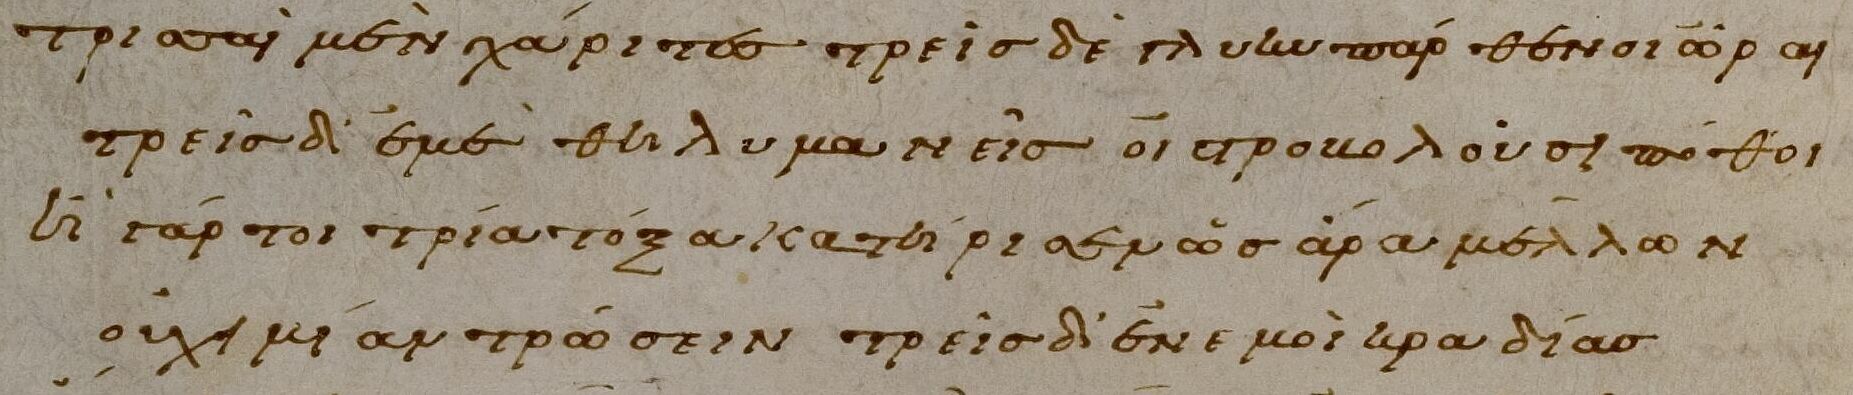 τρισσαὶ μὲν χάριτες τρεῖς δὲ γλυκυπάρθενοι ὧραι
τρεῖς δ' ἐμὲ θηλυμανεῖς οἰστροβολοῦσι πόθοι
ἦ γάρ τοι τρία τόξα κατήρισεν ὣς ἄρα μέλλων
οὐχὶ μίαν τρώσειν τρεῖς δ' ἐν ἐμοὶ κραδίας